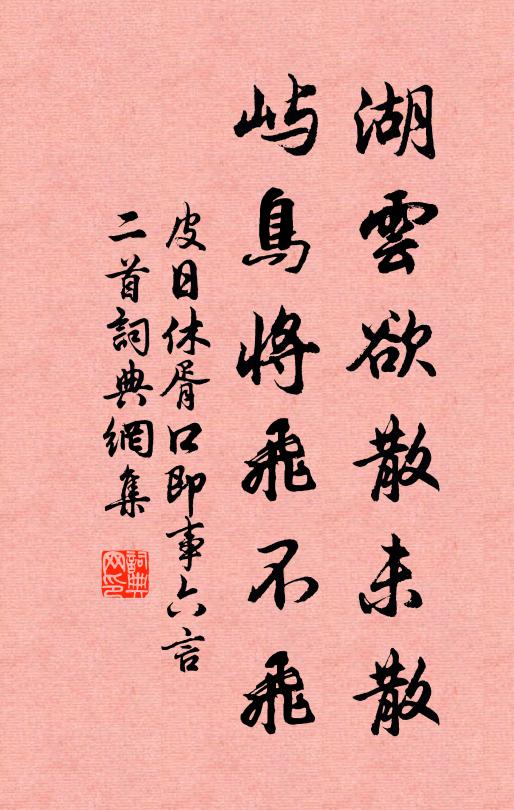 湖雲欲散未散
嶼鳥將飛不飛
皮日休胥口即事六言
二首詞典網集
詞典
网印